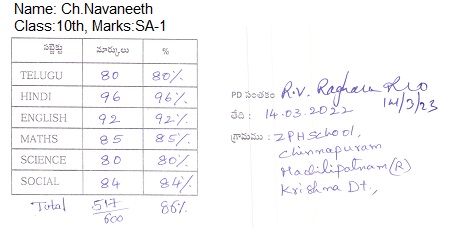 Name: Ch.Navaneeth
Class:10th, Marks:SA-1
సబ్జెక్టు మార్కులు %
TELUGU 80 80%
HINDI 96 96%
ENGLISH 92 92%
MATHS 85 85%
SCIENCE 80 80%
SOCIAL 84 84%
Total 517/600 86%
PD సంతకం R.V. Raghava Rao
14/3/23
తేది : 14.03.2022
గ్రామము : ZPHSchool,
Chinnapuram
Machilipatnam (R)
Krishna Dt.,